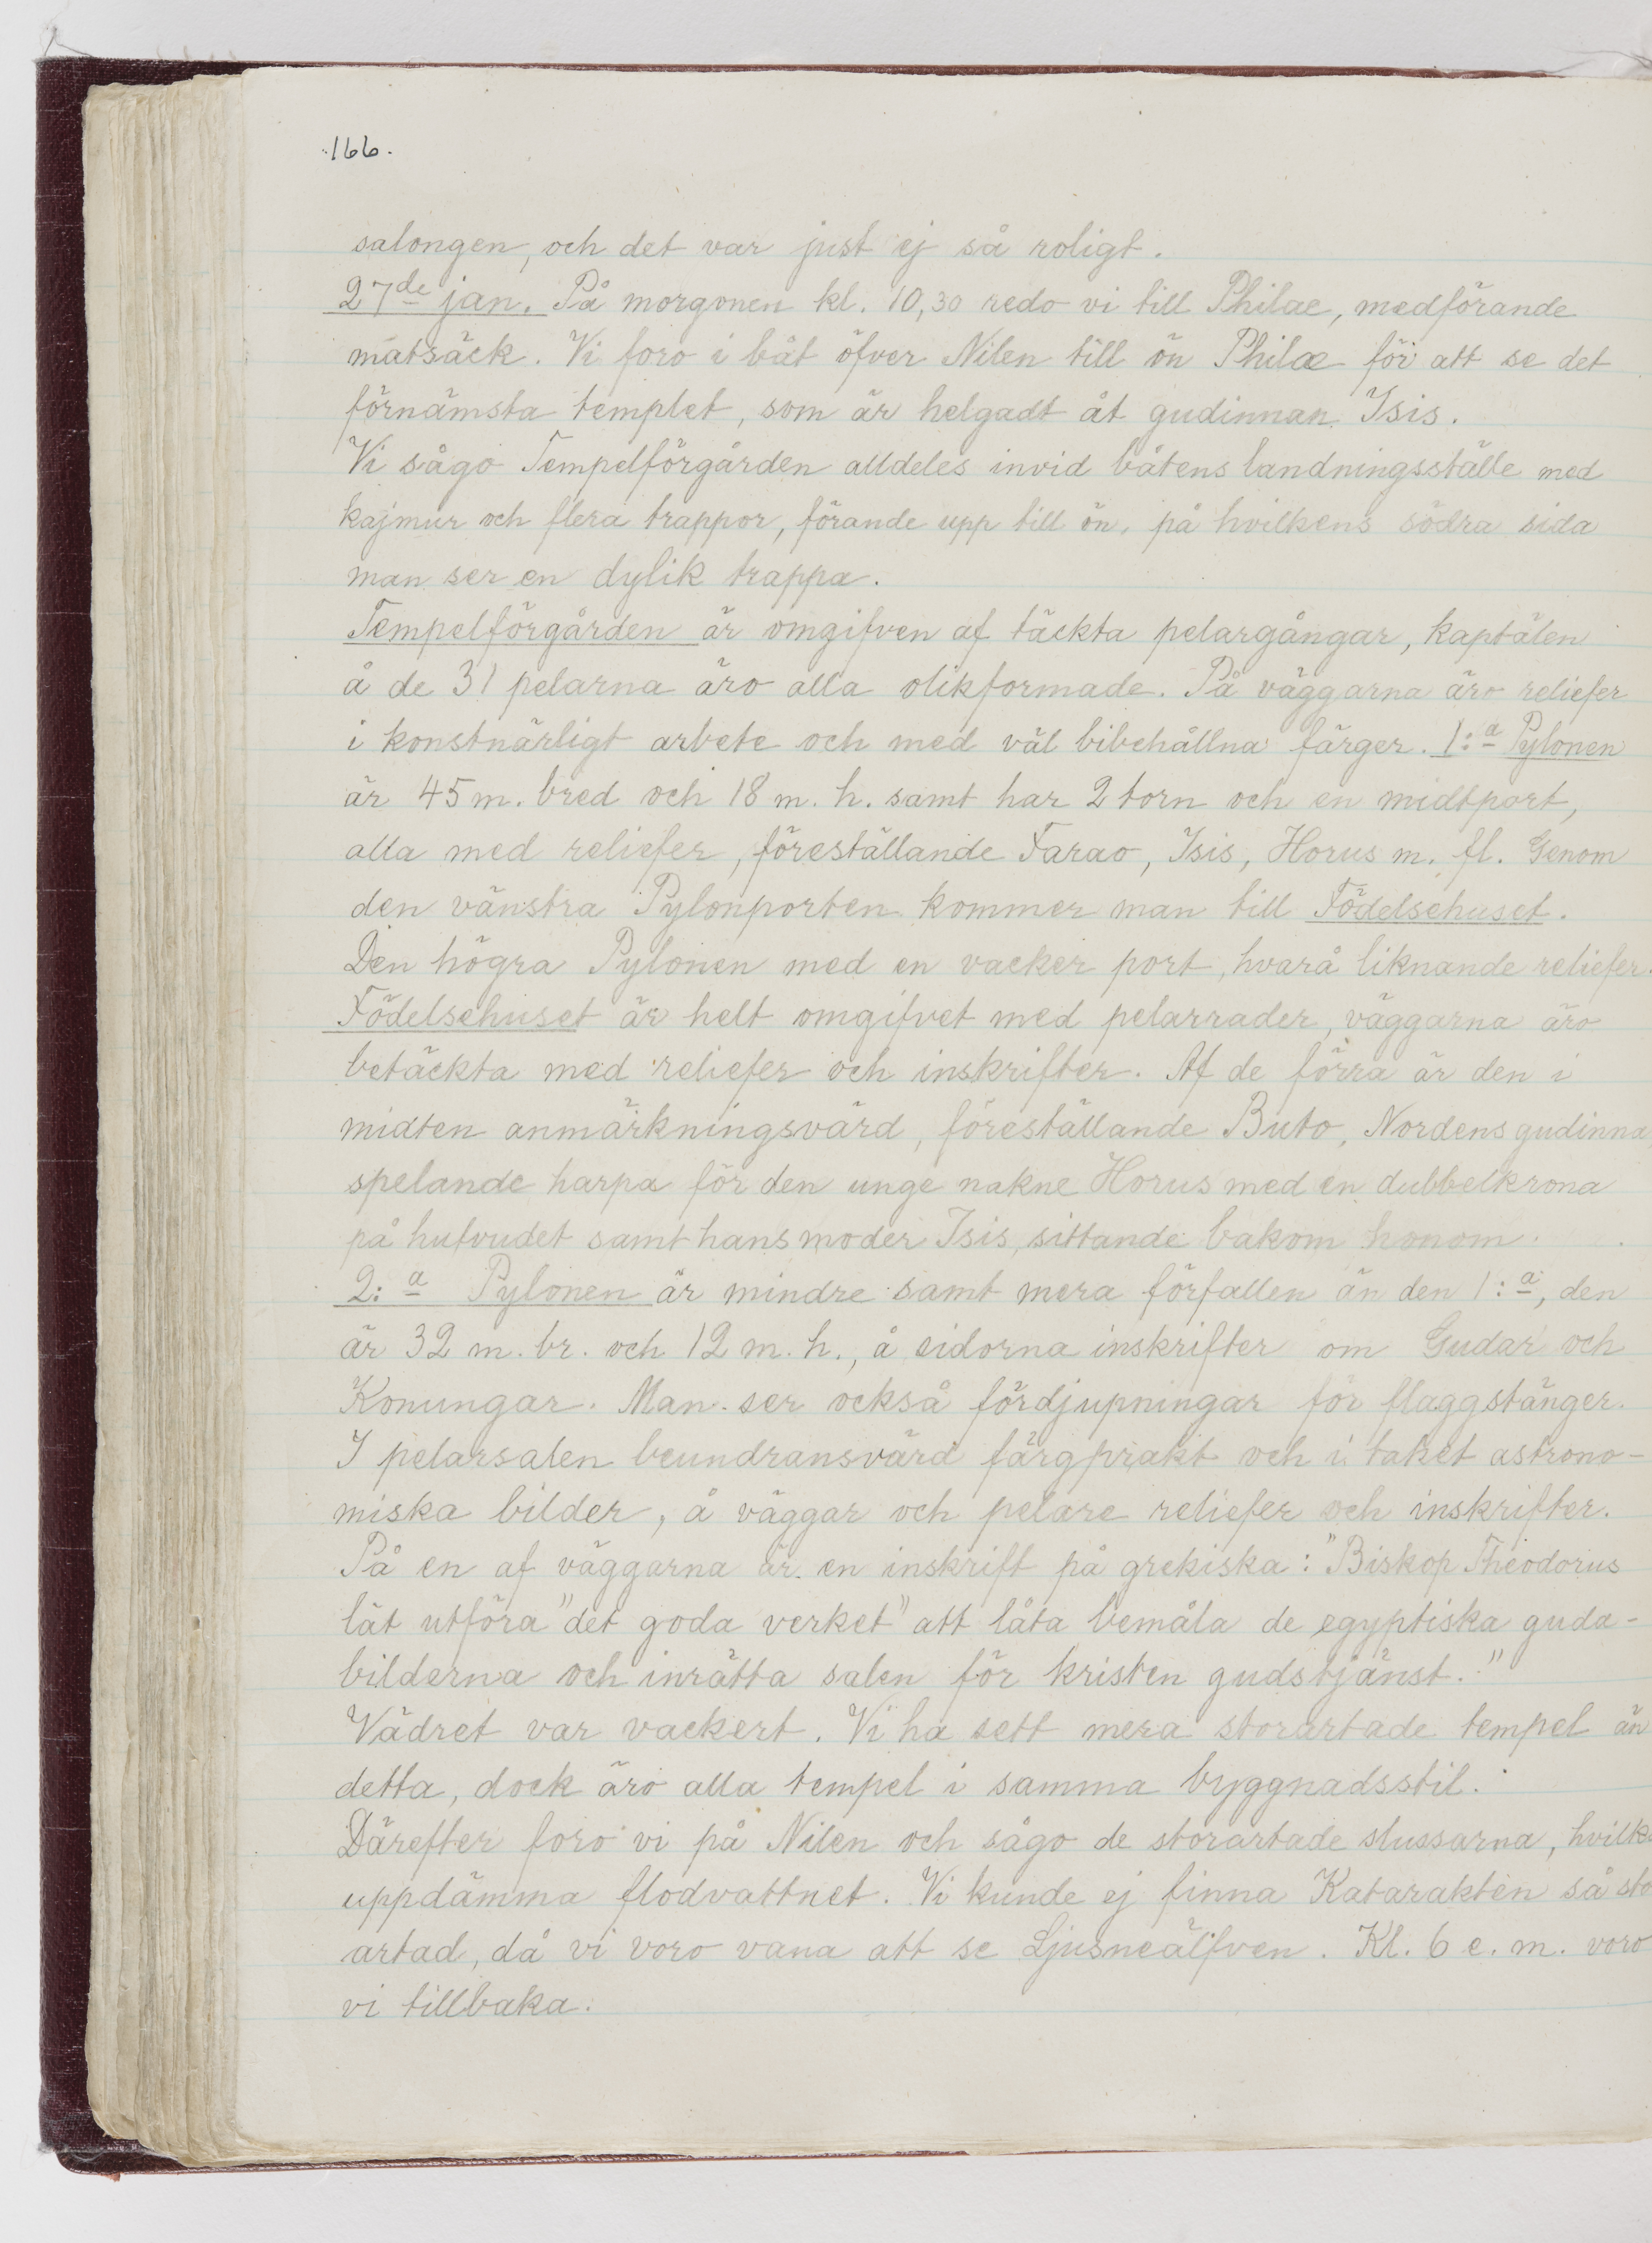 166.
salongen, och det var just ej så roligt.
27de jan. På morgonen kl. 10,30 redo vi till Philae, medförande
matsäck. Vi foro i båt öfver Nilen till ön Philæ för att se det
förnämsta templet, som är helgadt åt gudinnan Isis.
Vi sågo Tempelförgården alldeles invid båtens landningsställe med
kajmur och flera trappor, förande upp till ön, på hvilkens södra sida
man ser en dylik trappa.
Tempelförgården är omgifven af täckta pelargångar, kaptälen
å de 31 pelarna äro alla olikformade. På väggarna äro reliefer
i konstnärligt arbete och med väl bibehållna färger. 1:a Pylonen
är 45 m. bred och 18 m. h. samt har 2 torn och en midtport,
alla med reliefer, föreställande Farao, Isis, Horus m. fl. Genom
den vänstra Pylonporten kommer man till Födelsehuset.
Den högra Pylonen med en vacker port, hvarå liknande reliefer.
Födelsehuset är helt omgifvet med pelarrader, väggarna äro
betäckta med reliefer och inskrifter. Af de förra är den i
midten anmärkningsvärd, föreställande Buto, Nordens gudinna
spelande harpa för den unge nakne Horus med en dubbelkrona
på hufvudet samt hans moder Isis, sittande bakom honom.
2:a Pylonen är mindre samt mera förfallen än den 1:a, den
är 32 m. br. och 12 m. h., å sidorna inskrifter om Gudar och
Konungar. Man ser också fördjupningar för flaggstänger.
I pelarsalen beundransvärd färgprakt och i taket astrono-
miska bilder, å väggar och pelare reliefer och inskrifter.
På en af väggarna är en inskrift på grekiska: "Biskop Theodorus
lät utföra "det goda verket" att låta bemåla de egyptiska guda-
bilderna och inrätta salen för kristen gudstjänst."
Vädret var vackert. Vi ha sett mera storartade tempel än
detta, dock äro alla tempel i samma byggnadsstil.
Därefter foro vi på Nilen och sågo de storartade slussarna, hvilka
uppdämma flodvattnet. Vi kunde ej finna Katarakten så sto
artad, då vi voro vana att se Ljusneälfven. Kl. 6 e. m. voro
vi tillbaka.